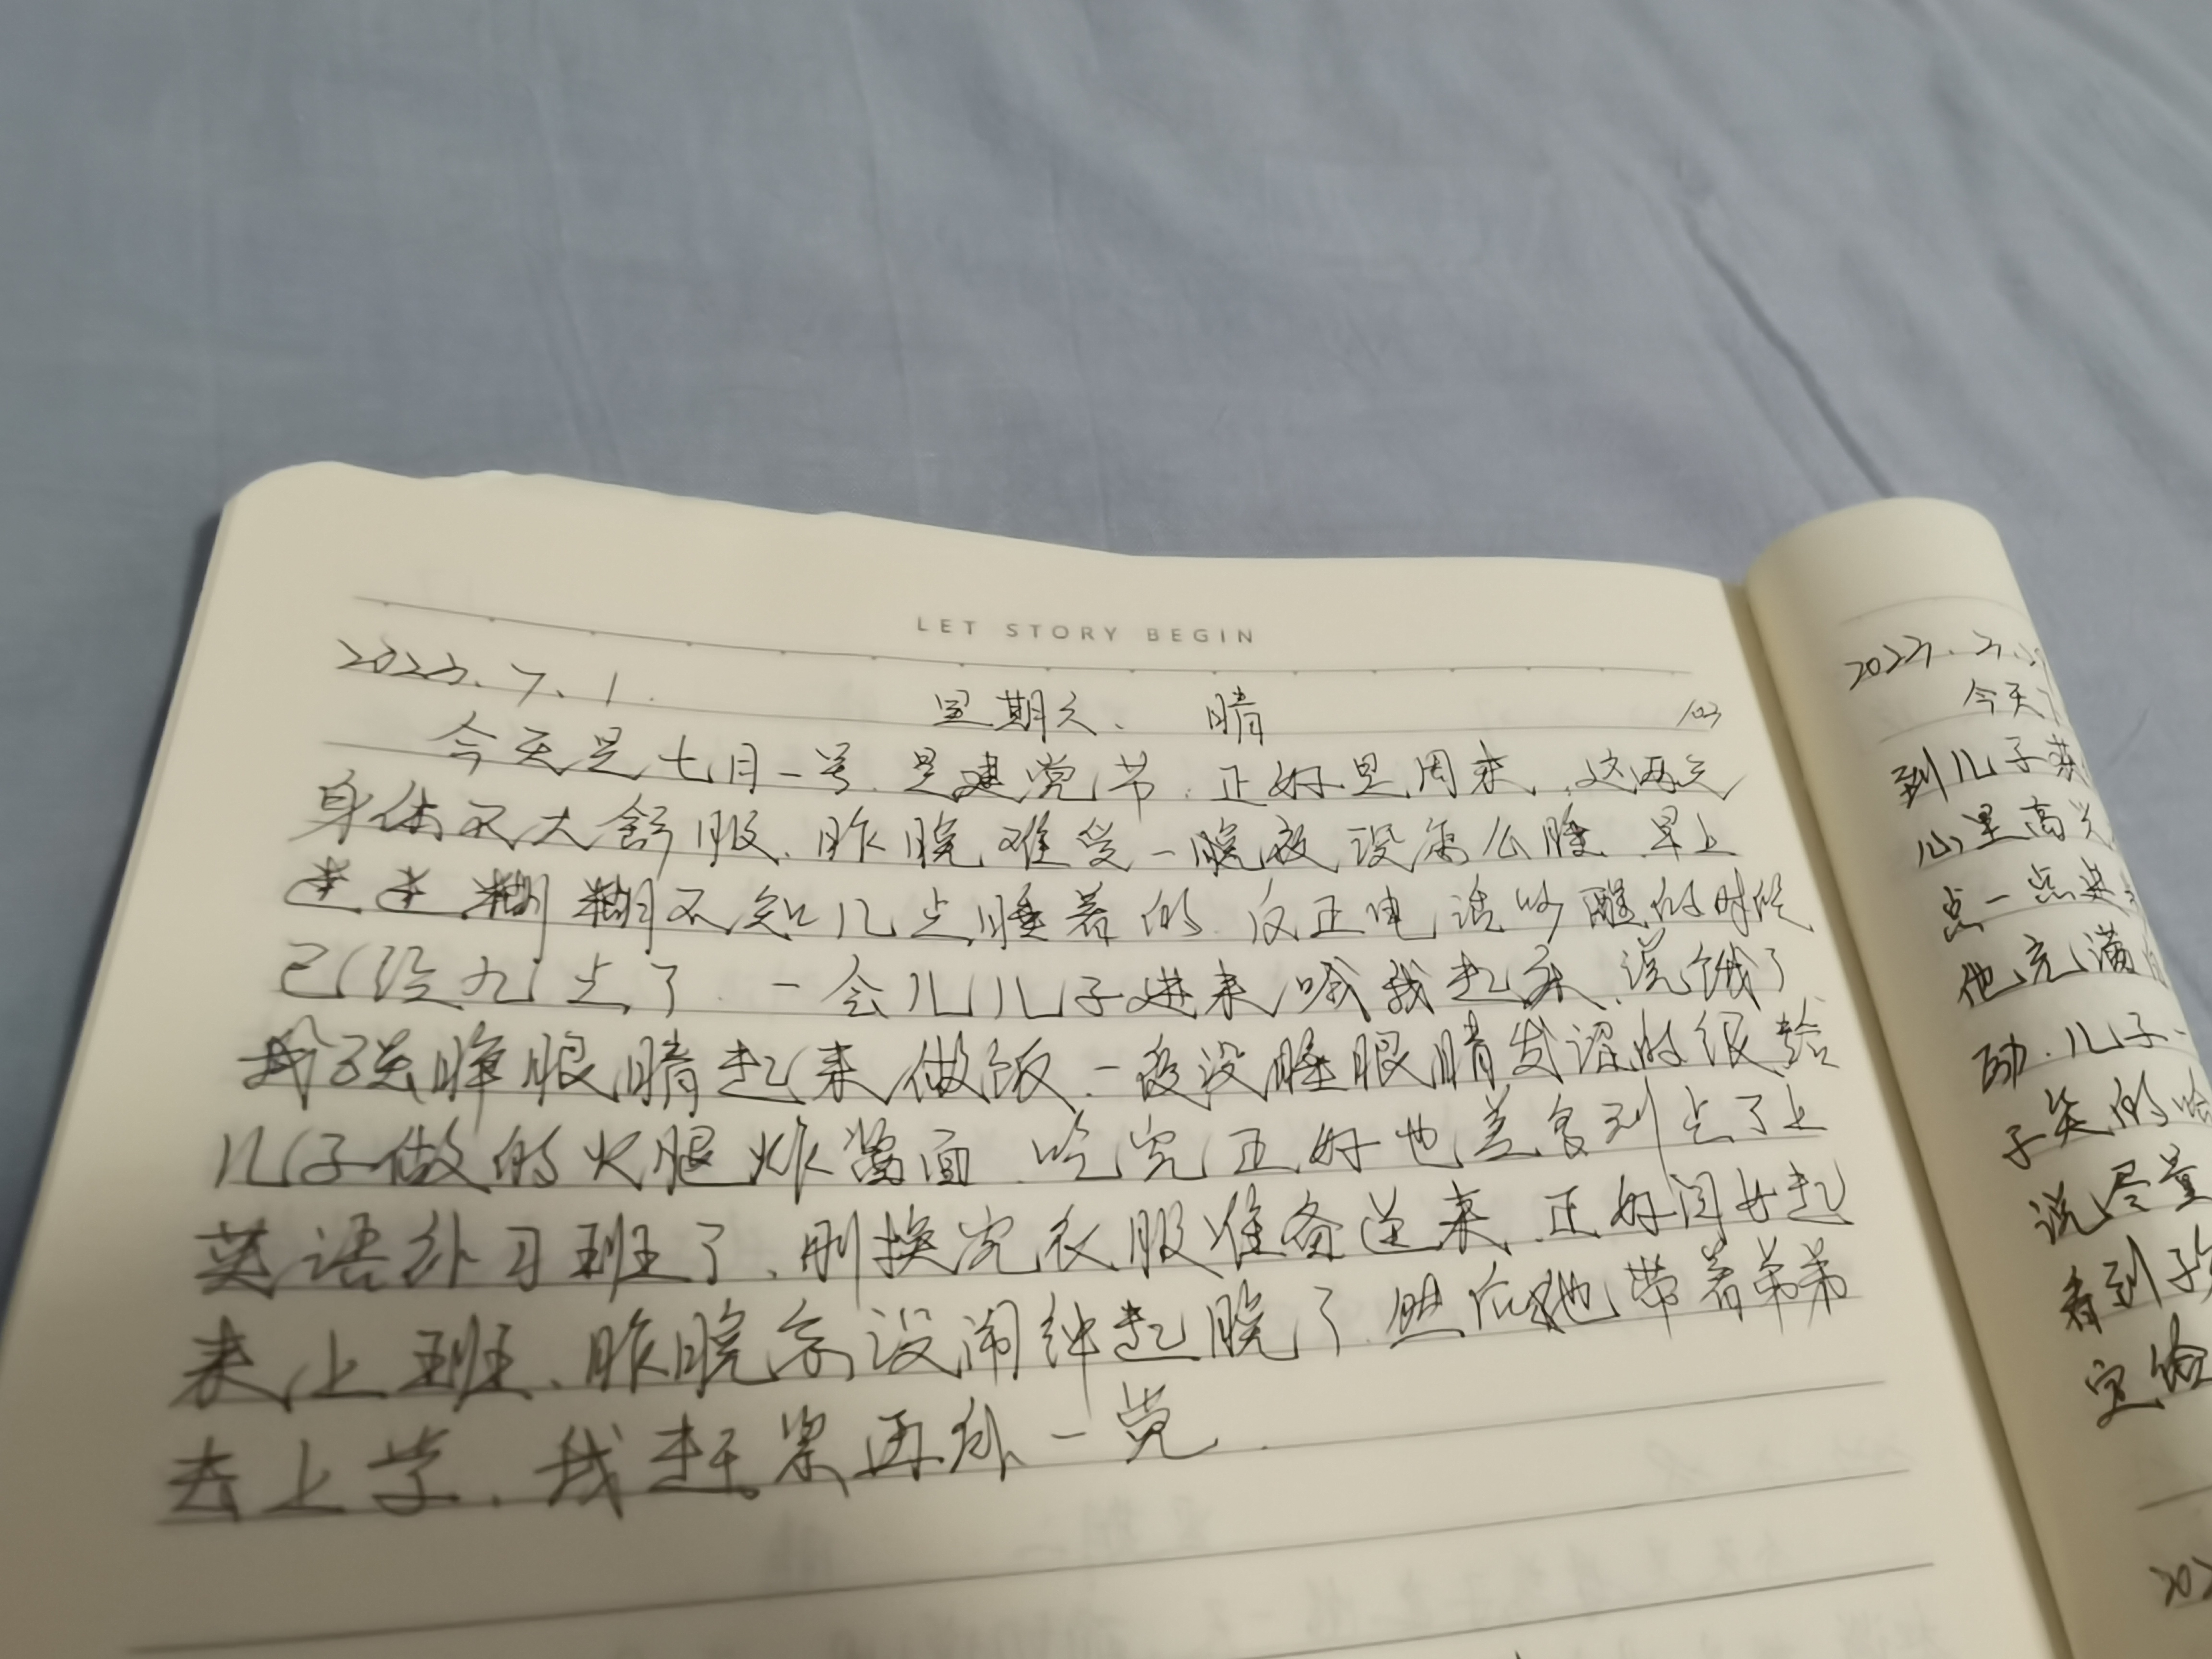 LET STORY BEGIN
2023.7.1. 星期六、 晴 103
今天是七月一号.是建党节.正好是周末,这两天
身体不大舒服、昨晚难受一晚夜没怎么睡 早上
迷迷糊糊不知几点睡着的.反正电话吵醒的时候
已经九点了.一会儿儿子进来喊我起床、说饿了
我强睁眼睛起来做饭、一夜没睡眼睛发涩的很 给
儿子做的火腿炸酱面.吃完正好也差多到点了上
英语补习班了、刚换完衣服准备送来.正好闺女起
来上班、昨晚忘设闹钟起晚了.然后她带着弟弟
去上学、我赶紧再补一觉.
2023.
今天
到儿子
心里高兴
点一点进
他充满
动.儿子一
子笑的哈
说尽量
看到孩
定给
202